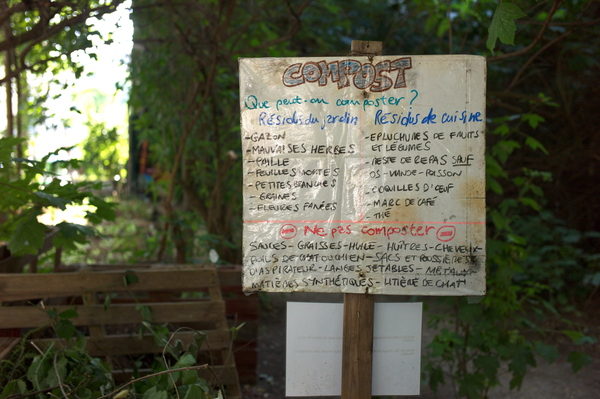 COMPOST
Que peut-on composter?
Résidus du jardin
- GAZON
- MAUVAISES HERBES
- PAILLE
- FEUILLES MORTES
- PETITES BRANCHES
- GRAINES
- FLEURES FANÉES
Résidus de cuisine
- EPLUCHURES DE FRUITS
ET LÉGUMES
- RESTE DE REPAS SAUF
OS - VIANDE - POISSON
- COQUILLES D'ŒUF
- MARC DE CAFÉ
- THÉ
Ne pas composter
SAUCES - GRAISSES - HUILE - HUÎTRES - CHEVEUX
POILS DE CHAT OU CHIEN - SACS ET POUSSIÈRES
D'ASPIRATEUR - LANGES JETABLES - METAUX
MATIÈRES SYNTHÉTIQUES - LITIÈRE DE CHAT